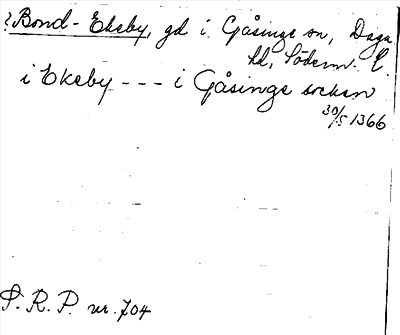 ?Bond-Ekeby, gd i Gåsinge sn, Daga
hd, Söderm. E.
i Ekeby --- i Gåsinge socken
30/5 1366
S.R.P. nr. 704